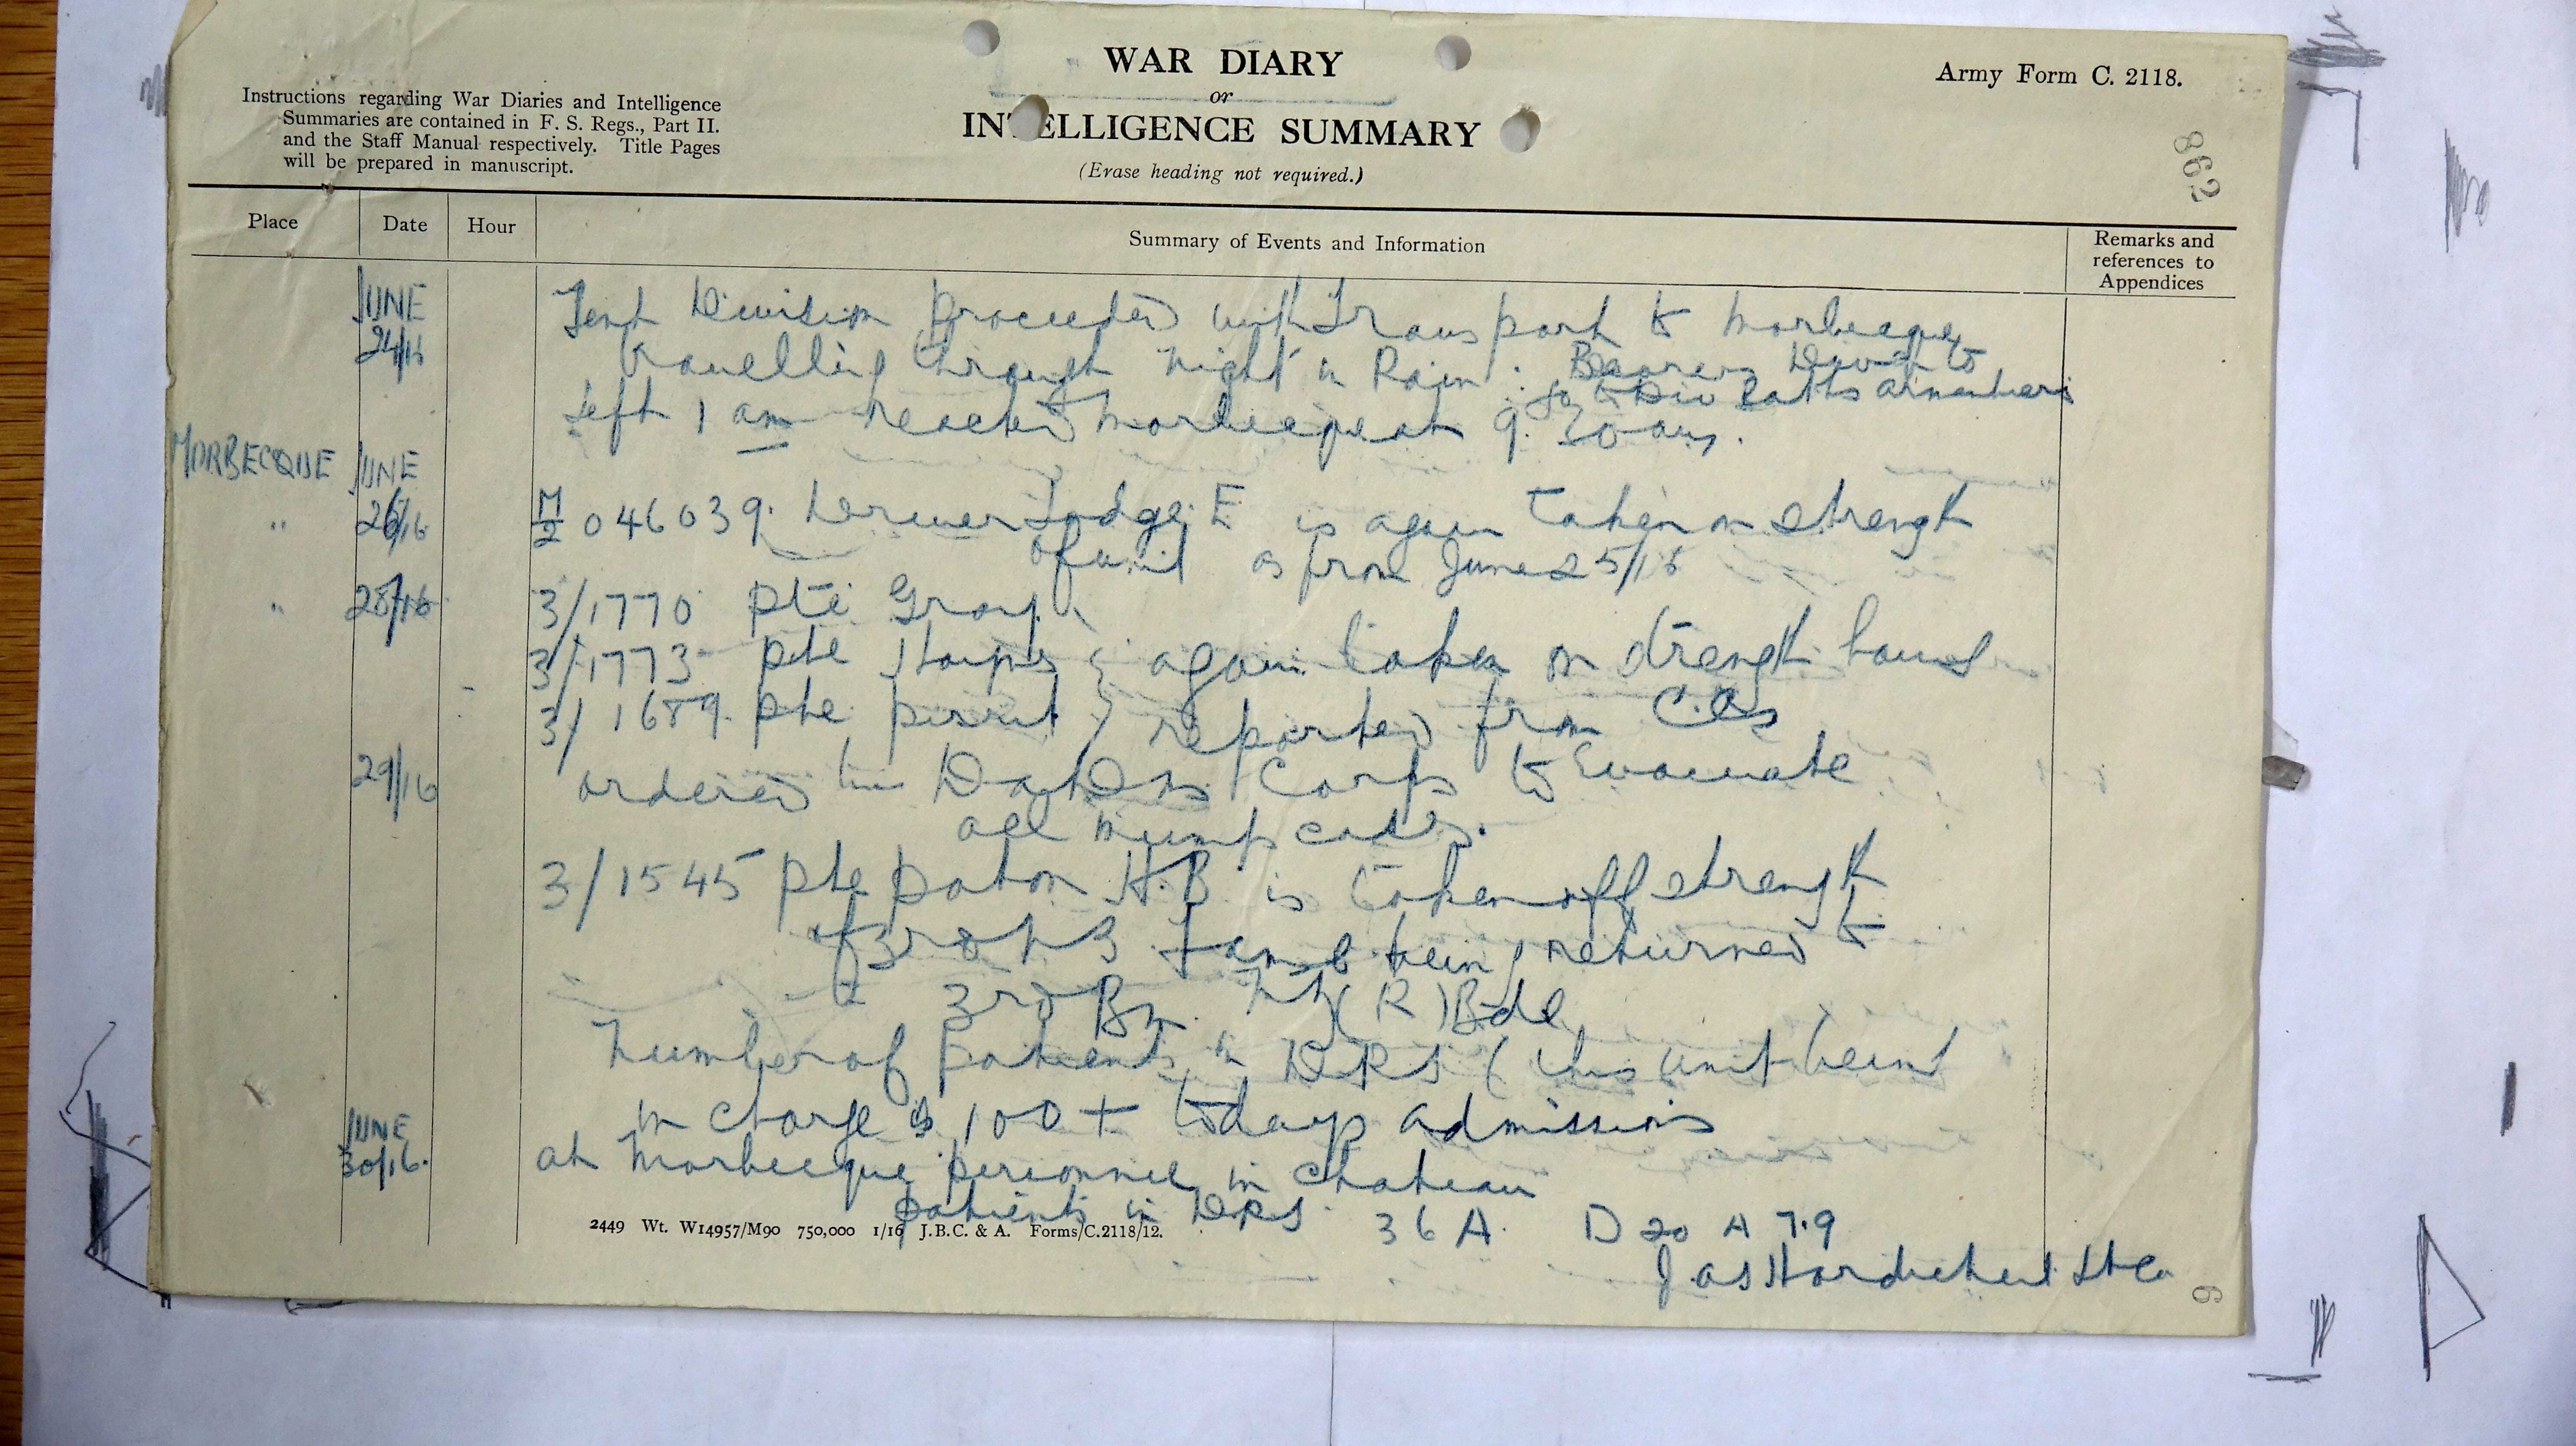 WAR DIARY
or
INTELLIGENCE SUMMARY
(Erase heading not required.)
Army Form C. 2118.
Instructions regarding War Diaries and Intelligence
Summaries are contained in F. S. Regs., Part II.
and the Staff Manual respectively. Title Pages
will be prepared in manuscript.
862
Place Date Hour Summary of Events and Information Remarks and references to Appendices
JUNE 24/16 Tent Division proceeded with transport to Morbecque
travelling through night in Rain. Bearers Divn to
go to Div Baths Armentieres
left 1 am reached Morbecque at 9.30 am.
MORBECQUE JUNE
" 26/16 M/2 046039. Driver Lodge. E is again taken on strength
of unit as from June 25/16
" 28/16 3/1770 Pte Gray
3/1773 pte again taken on strength having
3/1689 pte reported from C.C.S
29/16 ordered Corps to Evacuate
all mumps cases.
3/1545 Pte Paton H.B is taken off strength
of 3rd Famb being returned to
3rd Bn NZ (R) Bde
Number of patients in DRS (this unit being
in charge is 100 + todays admissions
JUNE 30/16. at Morbecque personnel in Chateau
patients in DRS. 36A. D 20 A 7.9
2449 Wt. W14957/M90 750,000 1/16 J.B.C. & A. Forms/C.2118/12.
Jas Hardie Lt Co
6